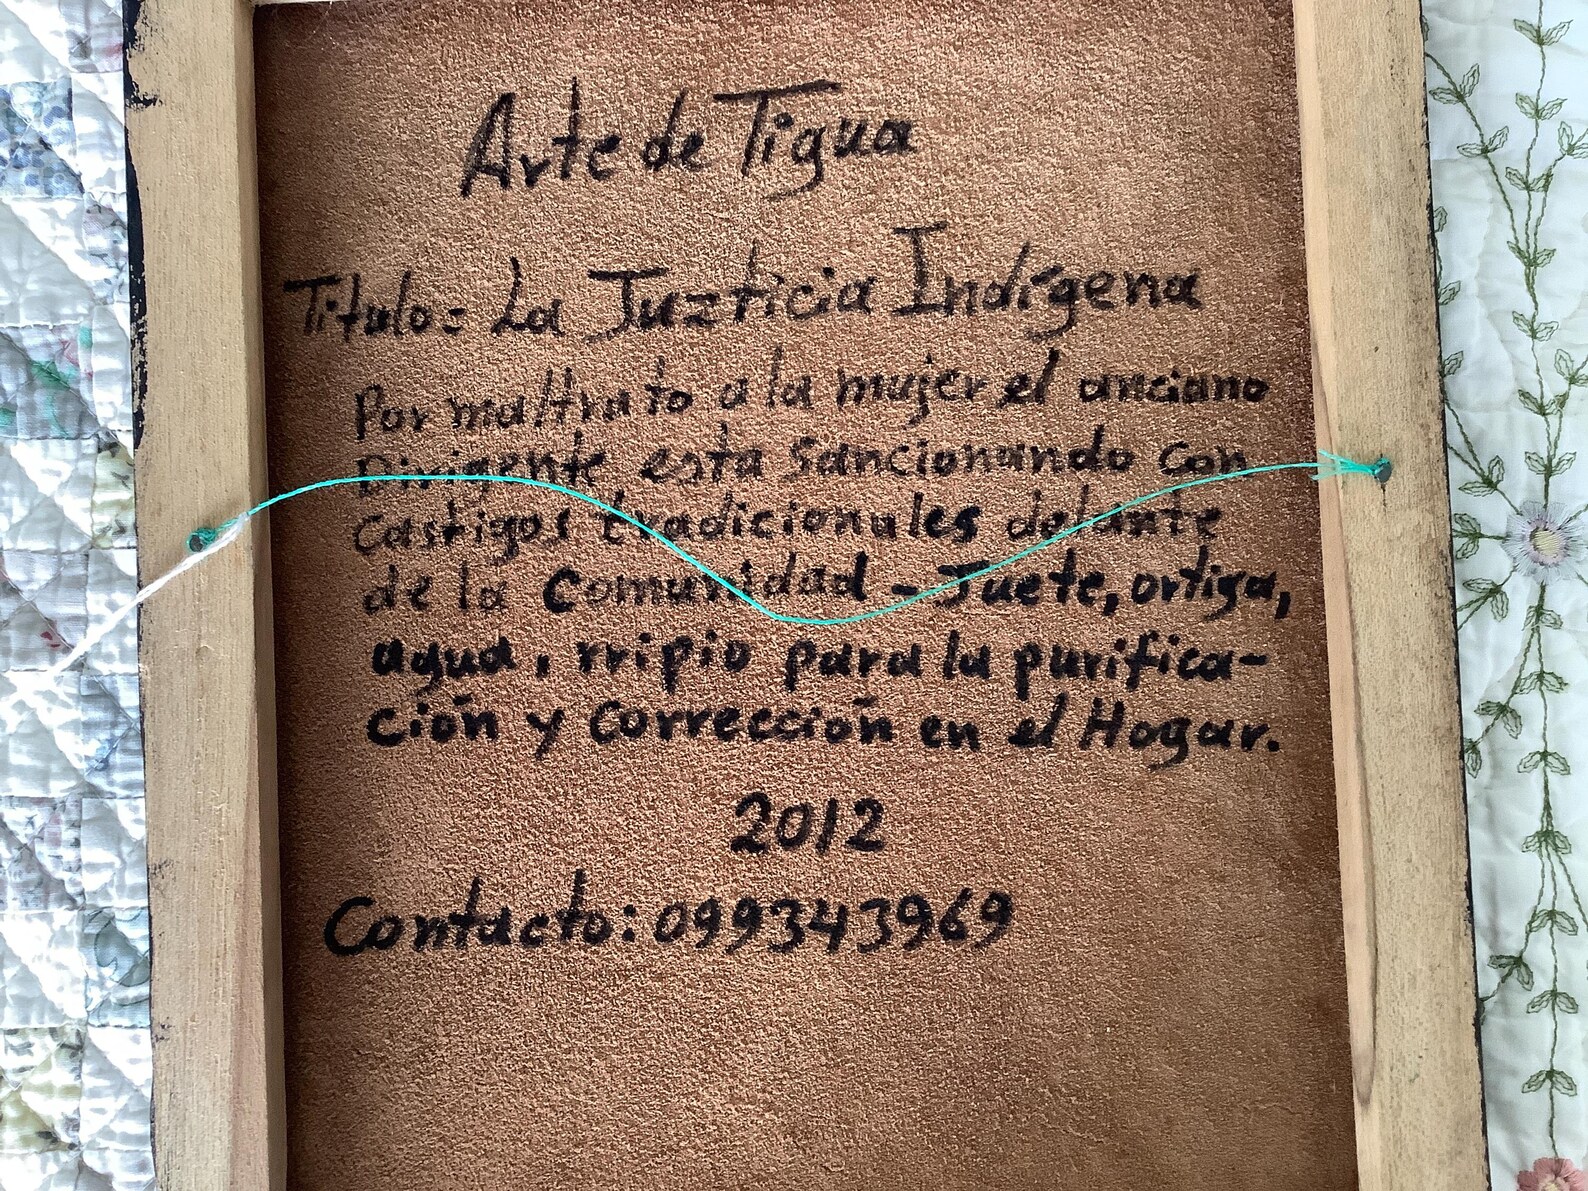 Arte de Tigua
Titulo= La Juzticia Indígena
Por maltrato a la mujer el anciano
Dirigente esta Sancionando Con
Castigos tradicionales delante
de la Comunidad - Juete, ortiga,
agua, rripio para la purifica-
ción y Corrección en el Hogar.
2012
Contacto: 099343969